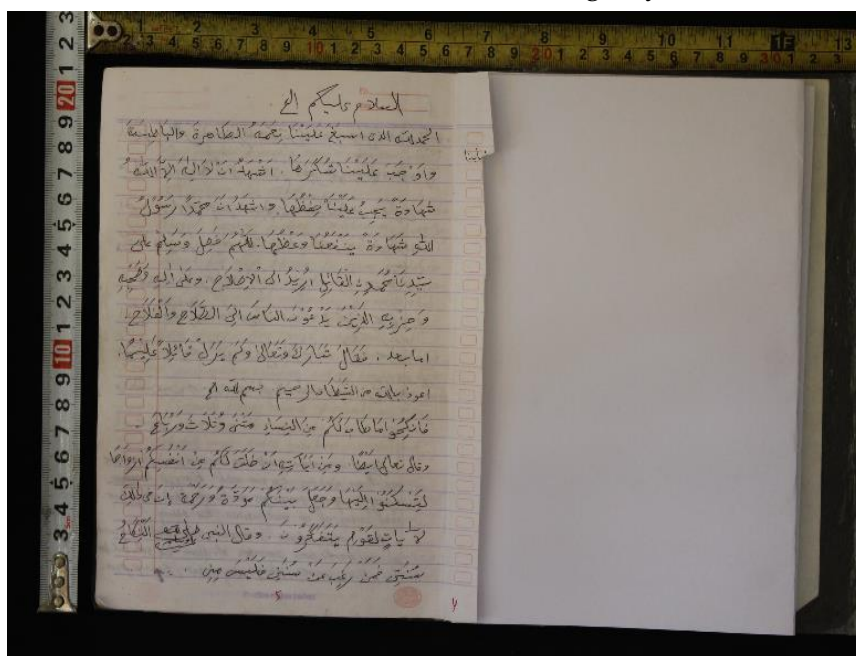 السلام عليكم الخ.
الحمد لله الذى اسبغ عَلَيْنَا نِعَمَهُ الظاهرة والباطنة
واوجَبَ عَلَيْنَا شُكْرَهَا. اَشْهَدُ اَنْ لاَ اِلٰهَ اِلاَّ اللهُ
شَهَادَةً يَجِبُ عَلَيْنَا حِفْظُهَا. واشهد اَنَّ محمدًا رَسُوْلُ
اللهِ شَهَادَةً يَنْفَعُنَا وَعْظُهَا. اللهم فَصَلِّ وَسَلِّمْ على
سَيِّدِنَا مُحَمَّدٍ القَائِلِ اُرِيْدُ الى الْاِصْلَاحِ. وعلى اٰلِهِ وَصَحْبِهِ
وَحِزْبِهِ الَّذِيْنَ يَدْعُوْنَ النَّاسَ اِلَى الصَّلَاحِ والْفَلَاحِ.
اما بعد. فَقَالَ تَبَارَكَ وَتَعَالَى وَلَمْ يَزَلْ قَائِلاً عَلِيْمًا.
اعوذ بالله من الشيطان الرجيم بسم الله الخ
فَانْكِحُوْا مَا طَابَ لَكُمْ مِنَ النِّسَاءِ مَثْنَى وَثُلَاثَ وَرُبَاعَ.
وقال تعالى ايضًا ومن اٰيَاتِهِ اَنْ خَلَقَ لَكُمْ مِنْ اَنْفُسِكُمْ اَزْوَاجًا
لِتَسْكُنُوْا اِلَيْهَا وَجَعَلَ بَيْنَكُمْ مَوَدَّةً وَرَحْمَةً اِنَّ فى ذالك
لَاٰيَاتٍ لِقَوْمٍ يَتَفَكَّرُوْنَ. وقال النبى النِّكَاحُ
سُنَّتِى فَمَنْ رَغِبَ عَنْ سُنَّتِى فَلَيْسَ مِنِّى.